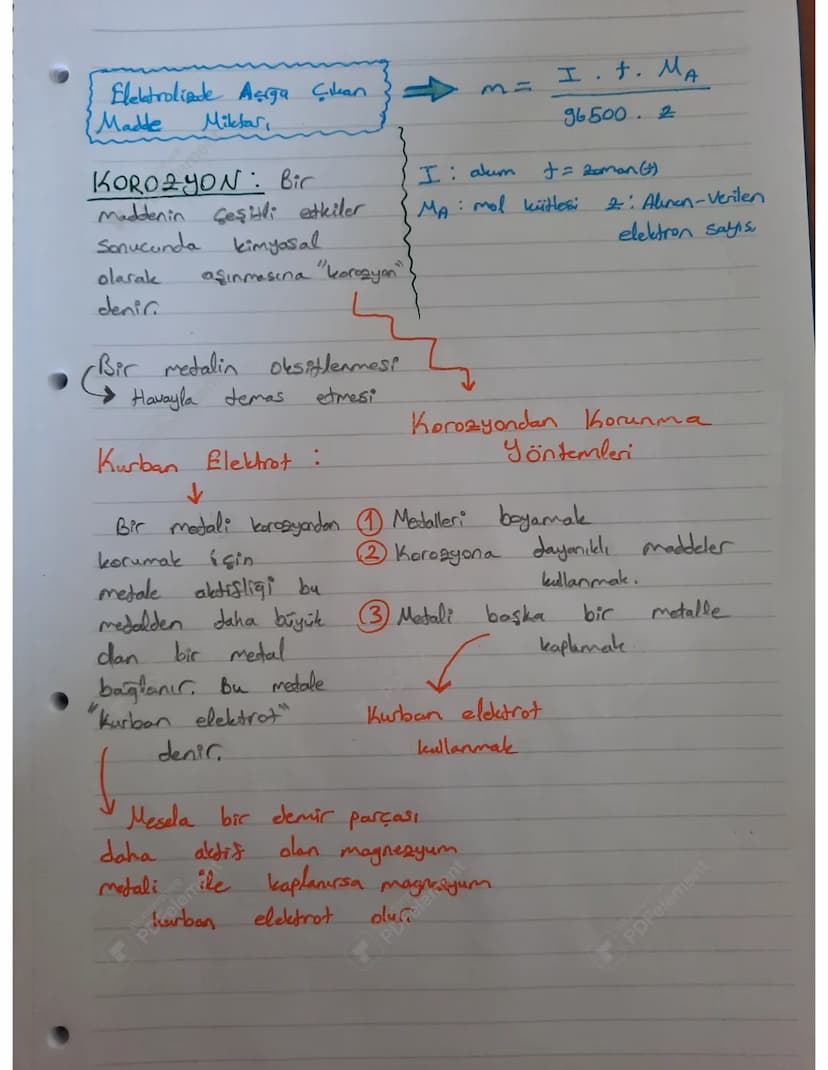 Elektrolizde Açığa Çıkan
Madde Miktarı
m = I . t . MA
96500 . z
I : akım t = zaman(s)
MA : mol kütlesi z : Alınan-Verilen
elektron sayısı
KOROZYON : Bir
maddenin çeşitli etkiler
sonucunda kimyasal
olarak aşınmasına "korozyon"
denir.
Bir metalin oksitlenmesi
Havayla temas etmesi
Korozyondan Korunma
Yöntemleri
1 Metalleri boyamak
2 Korozyona dayanıklı maddeler
kullanmak.
3 Metali başka bir metalle
kaplamak
Kurban elektrot
kullanmak
Kurban Elektrot :
Bir metali korozyondan
korumak için
metale aktifliği bu
metalden daha büyük
olan bir metal
bağlanır. Bu metale
"Kurban elektrot"
denir.
Mesela bir demir parçası
daha aktif olan magnezyum
metali ile kaplanırsa magnezyum
kurban elektrot olur.
PDFelement
PDFelement
PDFelement